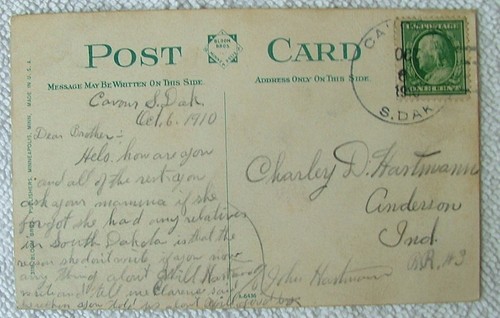 POST CARD
BLOOM BROS.
MESSAGE MAY BE WRITTEN ON THIS SIDE.
ADDRESS ONLY ON THIS SIDE.
U.S. POSTAGE
ONE CENT
OCT
6
S. DAK
MADE IN U.S.A.
MINNEAPOLIS, MINN.
Cavour S. Dak
Oct. 6. 1910
Dear Brother:-
Helo, how are you
and all of the rest you
ask your mamma if she
forgot she had any relatives
in South Dakota is that the
reason she don't write if you now
any thing about Will Hartmann
write and tell me Clarence said
you told us about
Charley D. Hartmann
Anderson
Ind.
RR. #3
John Hartmann